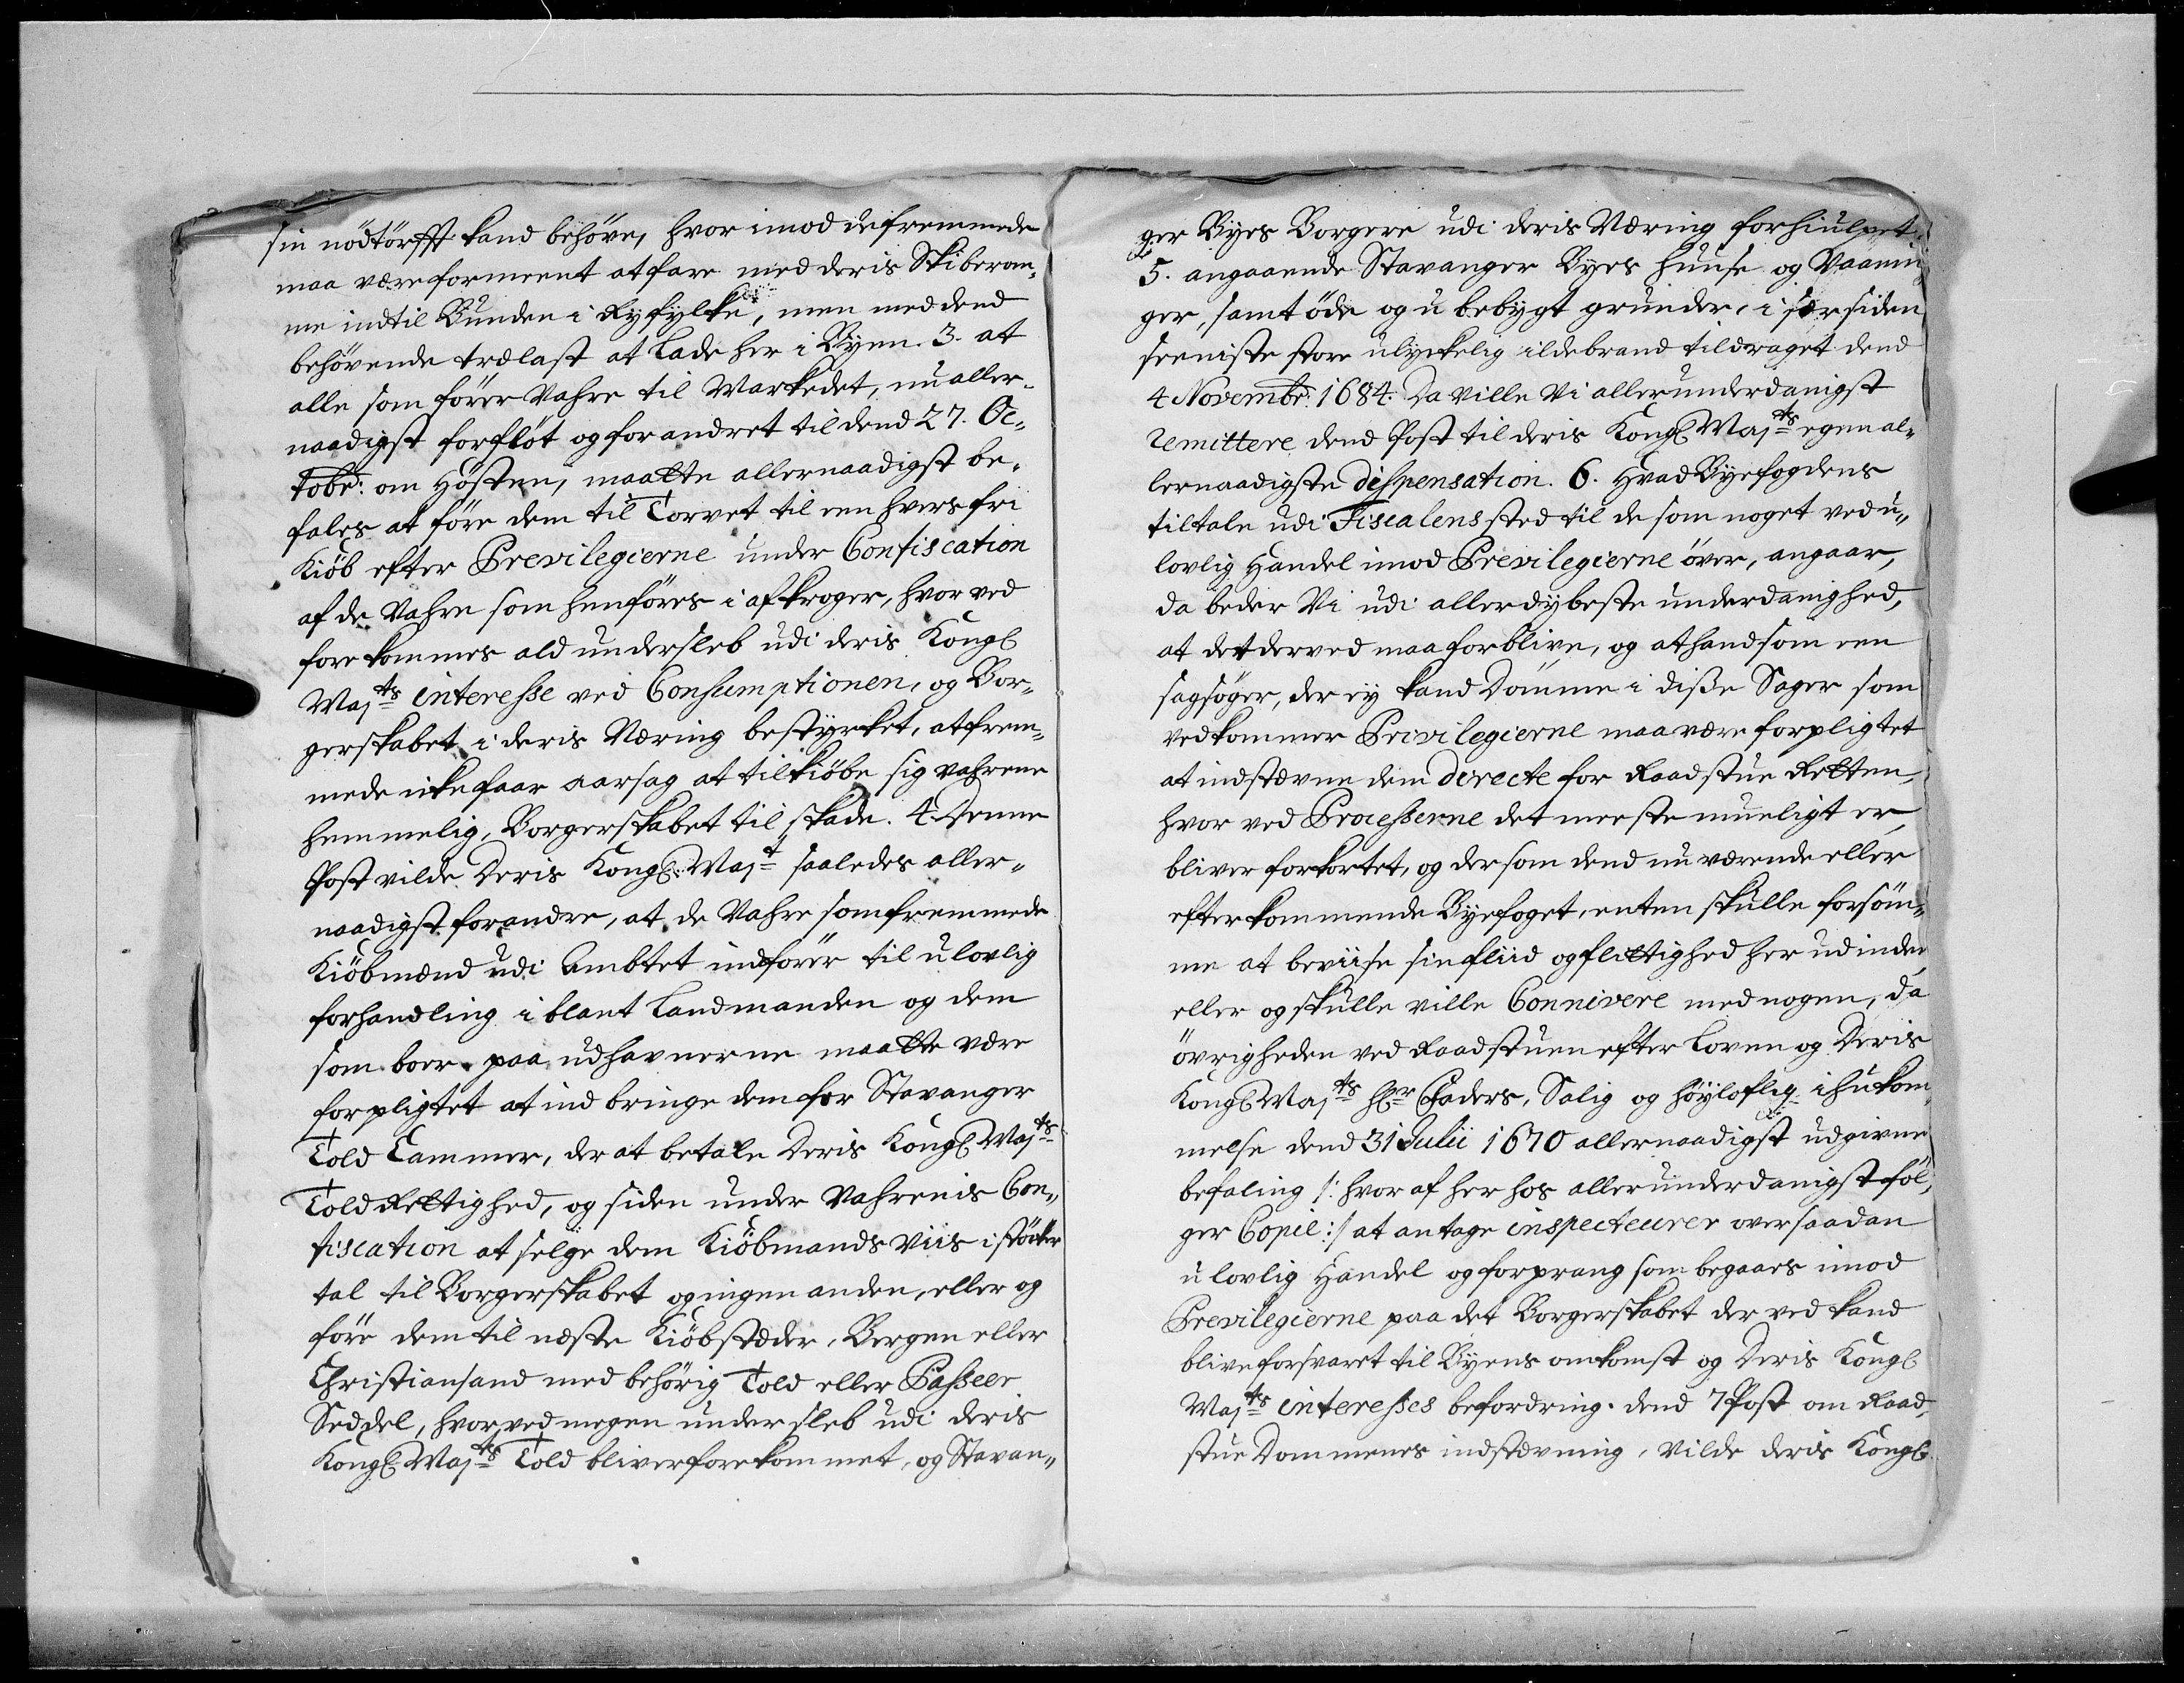 sin nödtörfft kand behöve, hvor imod de fremmede
maa være forment at fare med deris Skiberom„
me indtil Bunden i Ryfylke, men med dend
behövende trælast at Lade her i Byen. 3. at
alle som förer Vahre til Markedet, nu aller„
naadigst forflöt og forandret til dend 27. Oc„
tobr: om Hösten, maatte allernaadigst be„
fales at före dem til Torvet til een hvers fri
Kiöb efter Previlegierne under Confiscation
af de Vahre som henföres i afkroger, hvor ved
forekommes ald undersleb udi deris Kongl
Majts interesse ved Consumptionen, og Bor„
gerskabet i deris Næring bestyrket, at frem„
mede icke faar aarsag at tilkiöbe sig vahrene
hemmelig, Borgerskabet til skade. 4 Denne
Post vilde Deris Kongl. Majt saaledes aller„
naadigst forandre, at de Vahre som fremmede
Kiöbmænd udi Ambtet indförer til ulovlig
forhandling i blant Landmanden og dem
som boer paa udhavnerne maatte være
forpligtet at ind bringe dem for Stavanger
Told Cammer, der at betale Deris Kongl Majts
Told Rettighed, og siden under Vahrenis Con„
fiscation at selge dem Kiöbmands Viis i stöcke
tal til Borgerskabet og ingen anden, eller og
före dem til næste Kiöbstæder, Bergen eller
Christiansand med behörig Told eller Passeer
Seddel, hvor ved megen undersleb udi deris
Kongl Majts Told bliver forekommet, og Stavan„
ger Byes Borgere udi deris Næring forhiulpet.
5. angaaende Stavanger Byes huuse og Vaanin„
ger, samt öde og u bebygt grunder, i sær siden
seeniste store ulyckelig ildebrand tildraget dend
4 Novembr. 1684. Da ville Vi allerunderdanigst
remittere dend Post til deris Kongl Majts egen al„
lernaadigste dispensation. 6. Hvad Byefogdens
tiltale udi Fiscalens sted til de som noget ved u„
lovlig Handel imod Previlegierne över, angaar,
da beder Vi udi allerdybeste underdanighed,
at det derved maa forblive, og at hand som een
sagsöger, der ey kand Dömme i disse Sager som
vedkommer Privilegierne maa være forpligtet
at indstævne dem directe for Raadstue Retten,
hvor ved Processerne det meeste mueligt er,
bliver forkortet, og dersom dend nu værende eller
efterkommende Byefoget, enten skulle forsöm„
me at beviise sin fliid og flittighed her udinden
eller og skulle ville Connivere med nogen, da
övrigheden ved Raadstuen efter Loven og Deris
Kongl Majts hr Faders, Salig og höyloflig ihukom„
melse dend 31 Julii 1670 allernaadigst udgivne
befaling /: hvor af her hos allerunderdanigst föl„
ger Copie :/ at antage inspecteurer over saadan
ulovlig Handel og forprang som begaaes imod
Previlegierne paa det Borgerskabet der ved kand
blive forsvaret til Byens omkomst og Deris Kongl
Majts interesses befordring. dend 7 Post om Raad„
stue Dommenes indstævning, vilde deris Kongl.